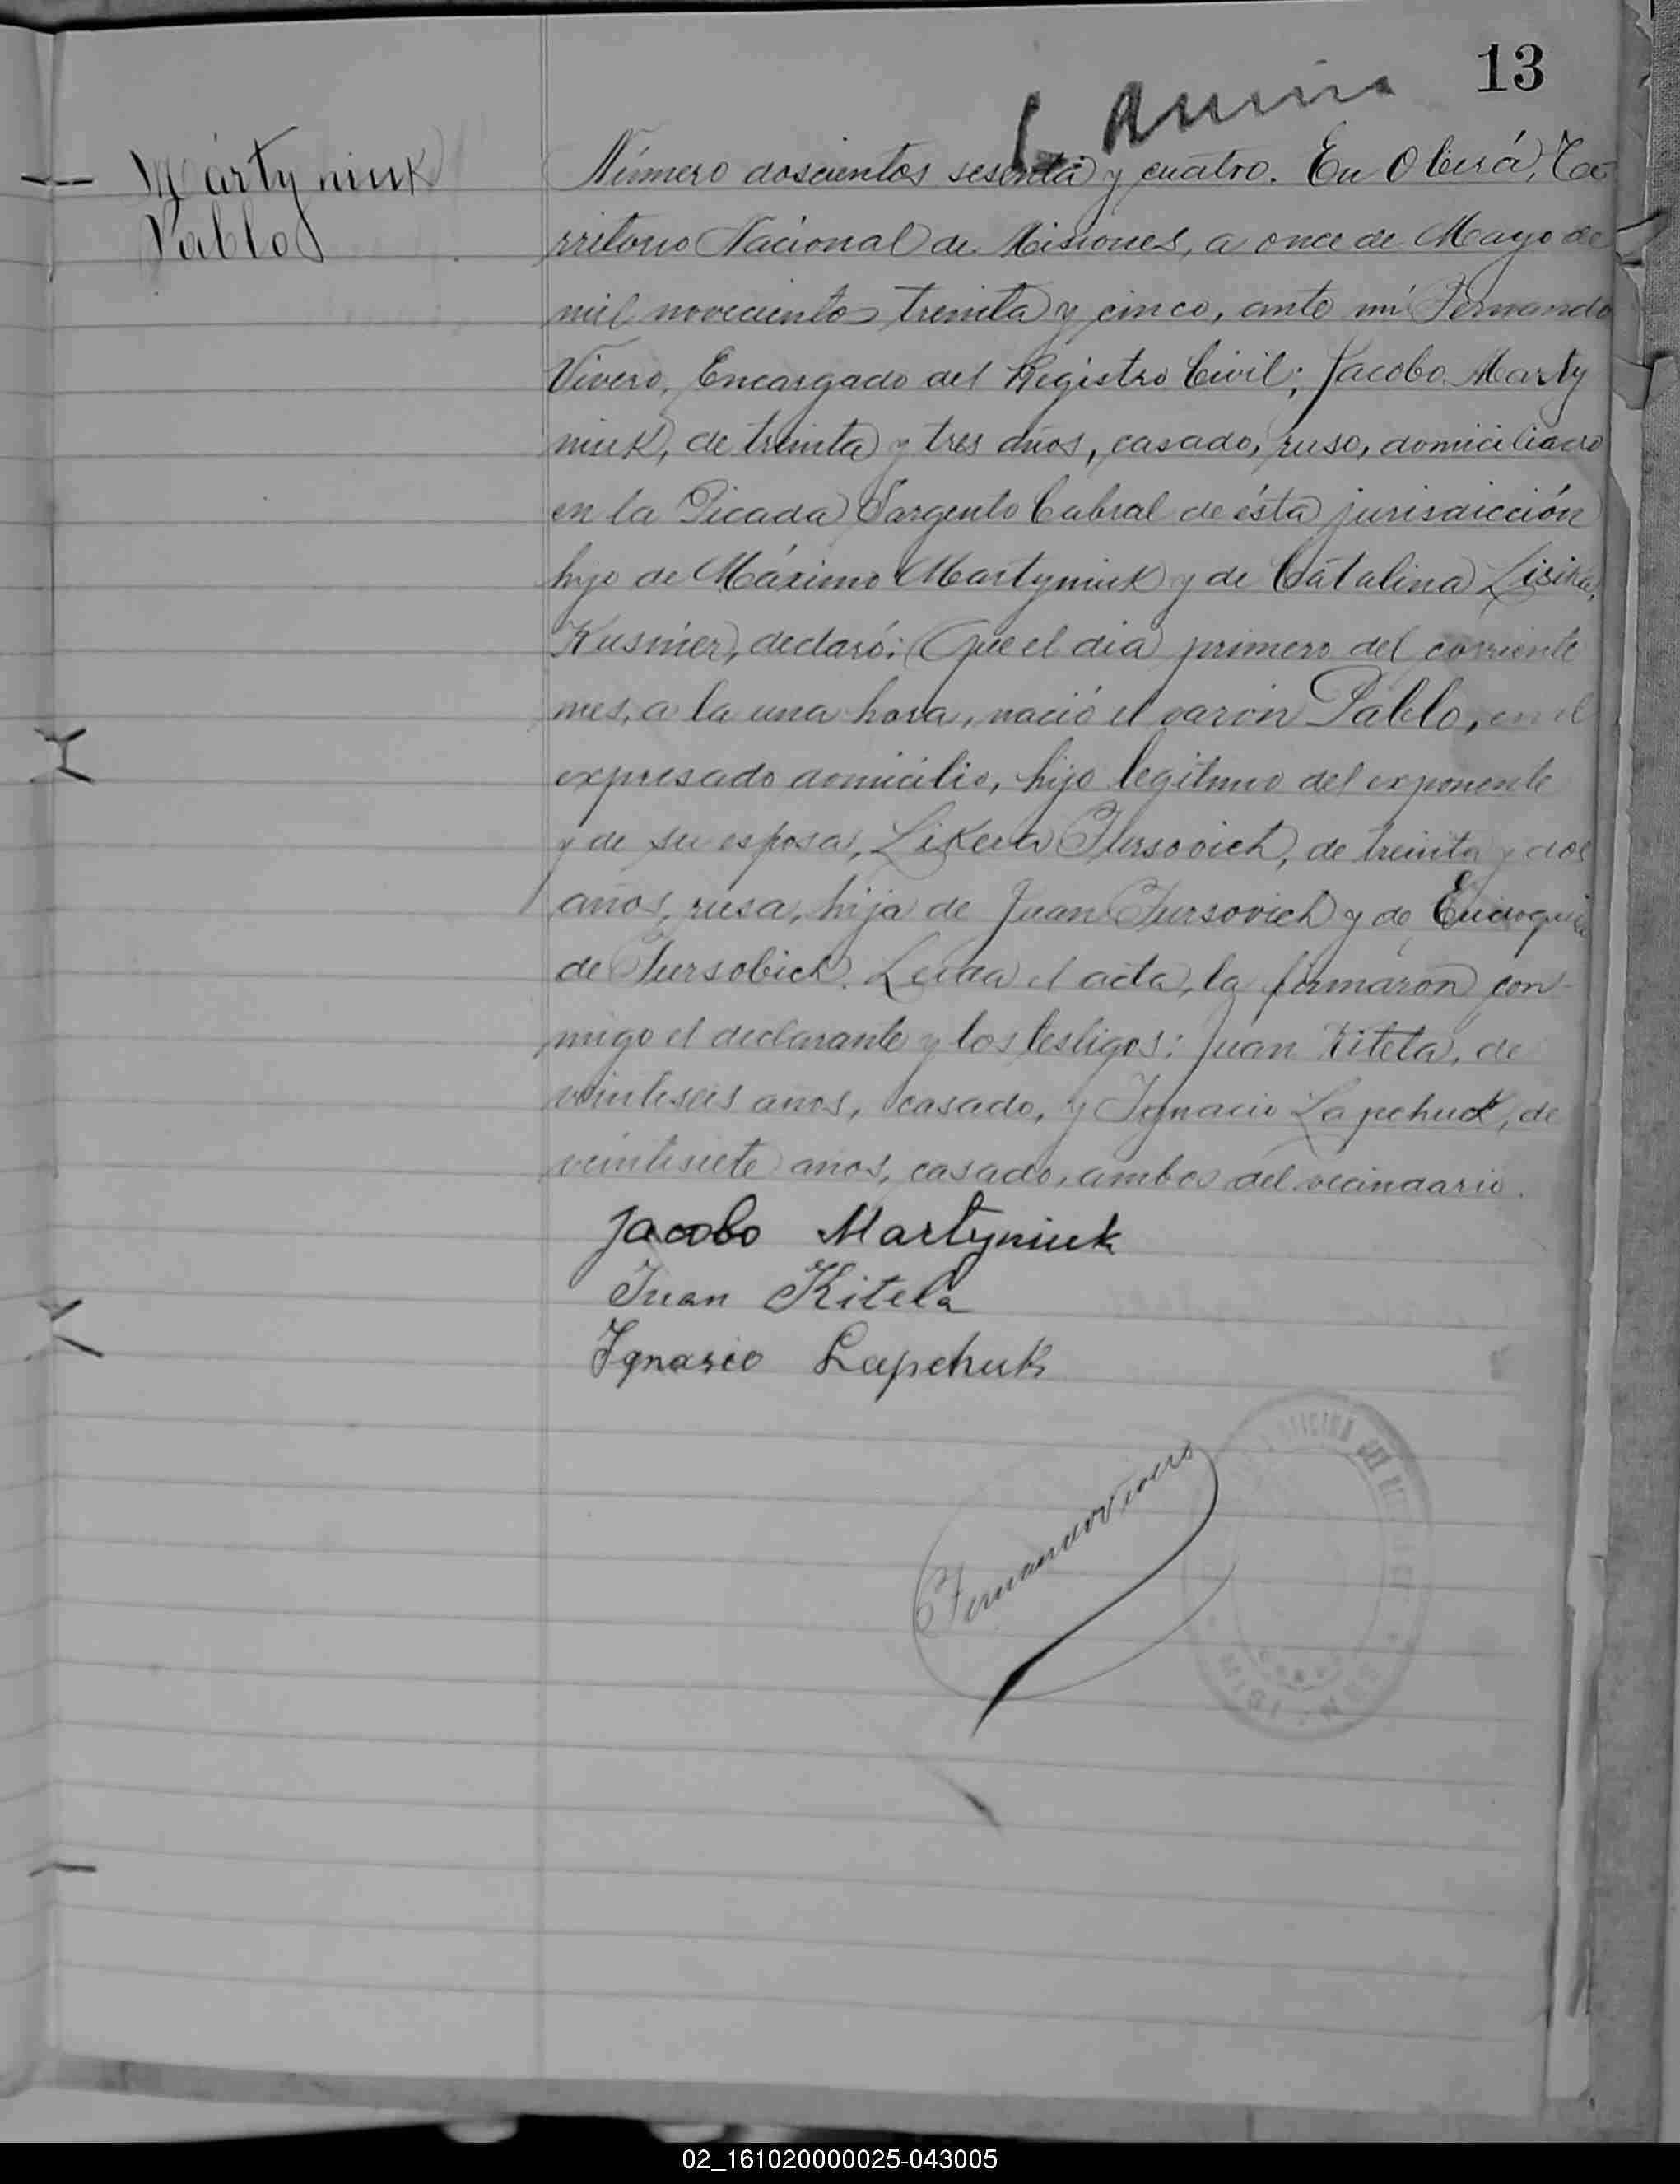 13
Martyniuk
Pablo
Número doscientos sesenta y cuatro. En Oberá, Te-
rritorio Nacional de Misiones, a once de Mayo de
mil novecientos treinta y cinco, ante mí Fernando
Vivero, Encargado del Registro Civil; Jacobo Marty
niuk, de treinta y tres años, casado, ruso, domiciliado
en la Picada Sargento Cabral de ésta jurisdicción
hijo de Máximo Martyniuk y de Catalina
declaró: Que el dia primero del corriente
mes, a la una hora, nació el varón Pablo, en el
expresado domicilio, hijo legitimo del exponente
y de su esposa, Fursovich, de treinta y dos
años, rusa, hija de Juan Fursovich y de
de Fursobich. Leida el acta, la firmaron con-
migo el declarante y los testigos: Juan Kitela, de
veintiseis años, casado, y Ignacio Lapchuk, de
veintisiete años, casado, ambos del vecindario.
Jacobo Martyniuk
Juan Kitela
Ignasio Lapchuk
Fernando Vivero
02_161020000025-043005